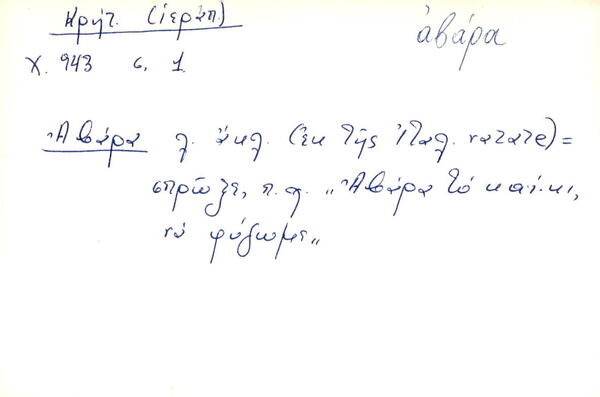 Κρήτ. (Ἱεράπ.)
ἀβάρα
Χ. 943 σ. 1
Ἀβάρα λ. ἄκλ. (ἐκ τῆς Ἰταλ. varare) =
σπρῶξε, π.χ. „Ἀβάρα τὸ καΐκι,
νὰ φύγωμε„